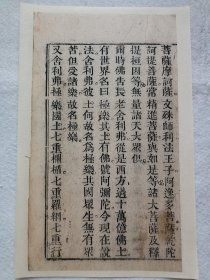 菩薩摩訶薩文殊師利法王子阿逸多菩薩乾陀
訶提菩薩常精進菩薩與如是等諸大菩薩及釋
提桓因等無量諸天大眾俱
爾時佛告長老舍利弗從是西方過十萬億佛土
有世界名曰極樂其土有佛號阿彌陀今現在說
法舍利弗彼土何故名為極樂其國眾生無有眾
苦但受諸樂故名極樂
又舍利弗極樂國土七重欄楯七重羅網七重行